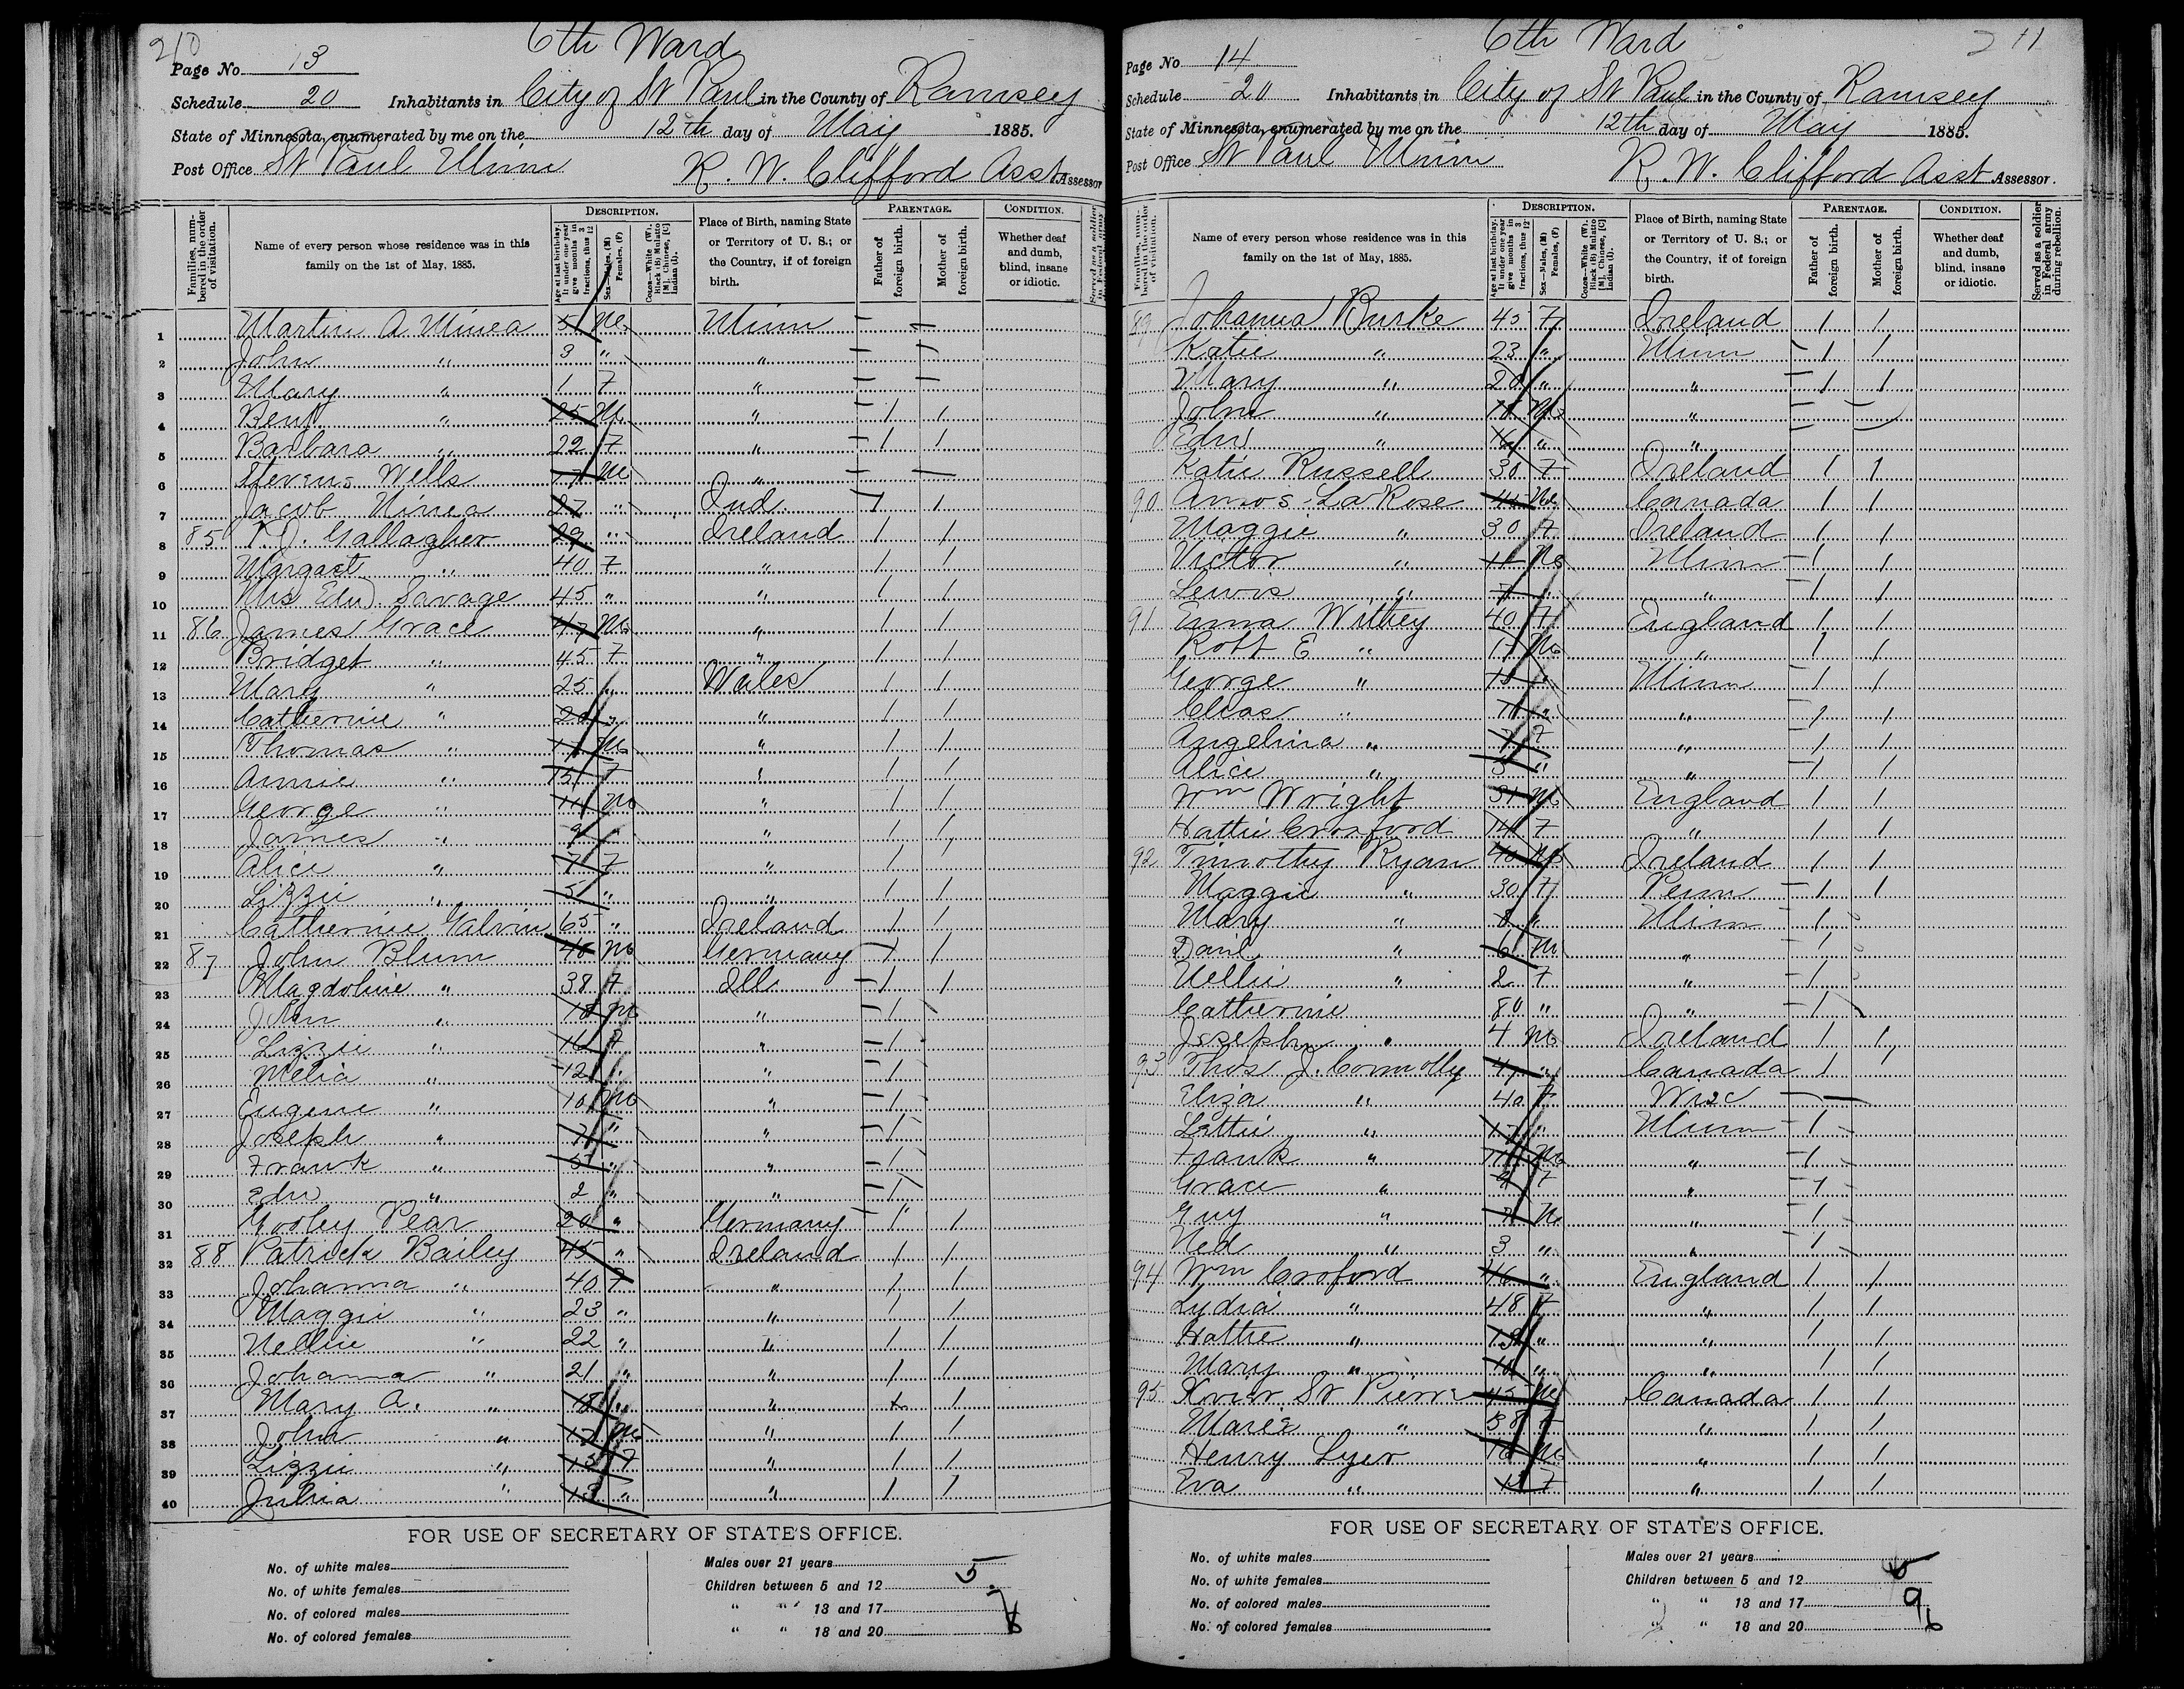 210
6th Ward
Page No 13
Schedule 20 Inhabitants in City of St Paul in the County of Ramsey
State of Minnesota, enumerated by me on the 12th day of May 1885.
Post Office St Paul Minn R. W. Clifford Asst Assessor
Families, numbered in the order of visitation.
Name of every person whose residence was in this family on the 1st of May, 1885.
DESCRIPTION.
Age at last birthday. If under one year give months in fractions, thus 3/12
Sex—Males, (M) Females, (F)
COLOR—White (W), Black (B) Mulatto [M], Chinese, [C] Indian (I).
Place of Birth, naming State or Territory of U. S.; or the Country, if of foreign birth.
PARENTAGE.
Father of foreign birth.
Mother of foreign birth.
CONDITION.
Whether deaf and dumb, blind, insane or idiotic.
Served as a soldier in Federal army
1 Martin A Minea 5 M Minn
2 John " 3 " "
3 Mary " 1 F "
4 Benj " 25 M " 1 1
5 Barbara " 22 F " 1 1
6 Stevens Wells 7 M "
7 Jacob Minea 27 " Ind 1 1
8 85 P. J. Gallagher 29 " Ireland 1 1
9 Margaet " 40 F " 1 1
10 Mrs Edw Savage 45 " " 1 1
11 86 James Grace 47 M " 1 1
12 Bridget " 45 F " 1 1
13 Mary " 25 " Wales 1 1
14 Catherine " 20 " " 1 1
15 Thomas " 17 M " 1 1
16 Annie " 15 F " 1 1
17 George " 11 M " 1 1
18 James " 9 " " 1 1
19 Alice " 7 F " 1 1
20 Lizzie " 5 " " 1 1
21 Catherine Galvin 65 " Ireland 1 1
22 87 John Blum 40 M Germany 1 1
23 Magdoline " 38 F Ill 1 1
24 John " 18 M " 1
25 Lizzie " 16 F " 1
26 Melia " 12 " " 1
27 Eugene " 10 M " 1
28 Joseph " 7 " " 1
29 Frank " 5 " " 1
30 Edw " 2 " " 1
31 Gooley Pear 20 " Germany 1 1
32 88 Patrick Bailey 45 " Ireland 1 1
33 Johanna " 40 F " 1 1
34 Maggie " 23 " " 1 1
35 Nellie " 22 " " 1 1
36 Johanna " 21 " " 1 1
37 Mary A. " 18 " " 1 1
38 John " 17 M " 1 1
39 Lizzie " 15 F " 1 1
40 Julia " 13 " " 1 1
FOR USE OF SECRETARY OF STATE'S OFFICE.
No. of white males
No. of white females
No. of colored males
No. of colored females
Males over 21 years
Children between 5 and 12 5
" " 13 and 17
" " 18 and 20
211
6th Ward
Page No 14
Schedule 20 Inhabitants in City of St Paul in the County of Ramsey
State of Minnesota, enumerated by me on the 12th day of May 1885.
Post Office St Paul Minn R. W. Clifford Asst Assessor.
Families, numbered in the order of visitation.
Name of every person whose residence was in this family on the 1st of May, 1885.
DESCRIPTION.
Age at last birthday. If under one year give months in fractions, thus 3/12
Sex—Males, (M) Females, (F)
COLOR—White (W), Black (B) Mulatto [M], Chinese, [C] Indian (I).
Place of Birth, naming State or Territory of U. S.; or the Country, if of foreign birth.
PARENTAGE.
Father of foreign birth.
Mother of foreign birth.
CONDITION.
Whether deaf and dumb, blind, insane or idiotic.
Served as a soldier in Federal army during rebellion.
89 Johanna Burke 45 F Ireland 1 1
Katie " 23 " Minn 1 1
Mary " 20 " " 1 1
John " 18 M "
Edw " 16 " "
Katie Russell 30 F Ireland 1 1
90 Amos La Rose 44 M Canada 1 1
Maggie " 30 F Ireland 1 1
Victor " 11 M Minn 1 1
Lewis " 7 " " 1 1
91 Emma Withey 40 F England 1 1
Robt E " 17 M " 1 1
George " 15 " Minn 1 1
Chas " 11 " " 1 1
Angelina " 7 F " 1 1
Alice " 5 " " 1 1
Wm Wright 31 M England 1 1
Hattie Crosford 14 F " 1 1
92 Timothy Ryan 40 M Ireland 1 1
Maggie " 30 F Penn 1 1
Mary " 8 " Minn 1
Danl " 6 M " 1
Nellie " 2 F " 1
Catherine 80 " " 1
Joseph " 4 M Ireland 1 1
93 Thos J. Connolly 47 " Canada 1
Eliza " 40 F Wisc
Lottie " 17 " Minn 1
Frank " 11 M " 1
Grace " 9 F " 1
Guy " 7 M " 1
Ned " 3 " " 1
94 Wm Croford 46 " England 1 1
Lydia " 48 F " 1 1
Hattie " 13 " " 1 1
Mary " 10 " " 1 1
95 Xvier St Pierre 45 M Canada 1 1
Marie " 38 F " 1 1
Henry Lyer 16 M " 1 1
Eva " 13 F " 1 1
FOR USE OF SECRETARY OF STATE'S OFFICE.
No. of white males
No. of white females
No. of colored males
No. of colored females
Males over 21 years
Children between 5 and 12
" " 13 and 17 9
" " 18 and 20 6